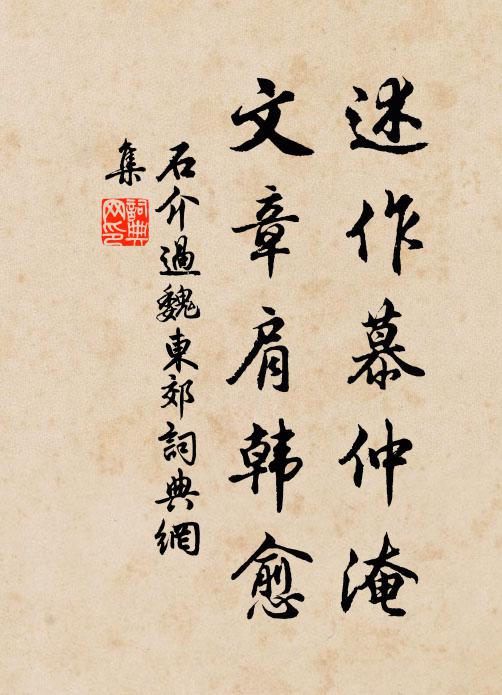 述作慕仲淹
文章肩韩愈
石介過魏東郊詞典網
集
詞典網印